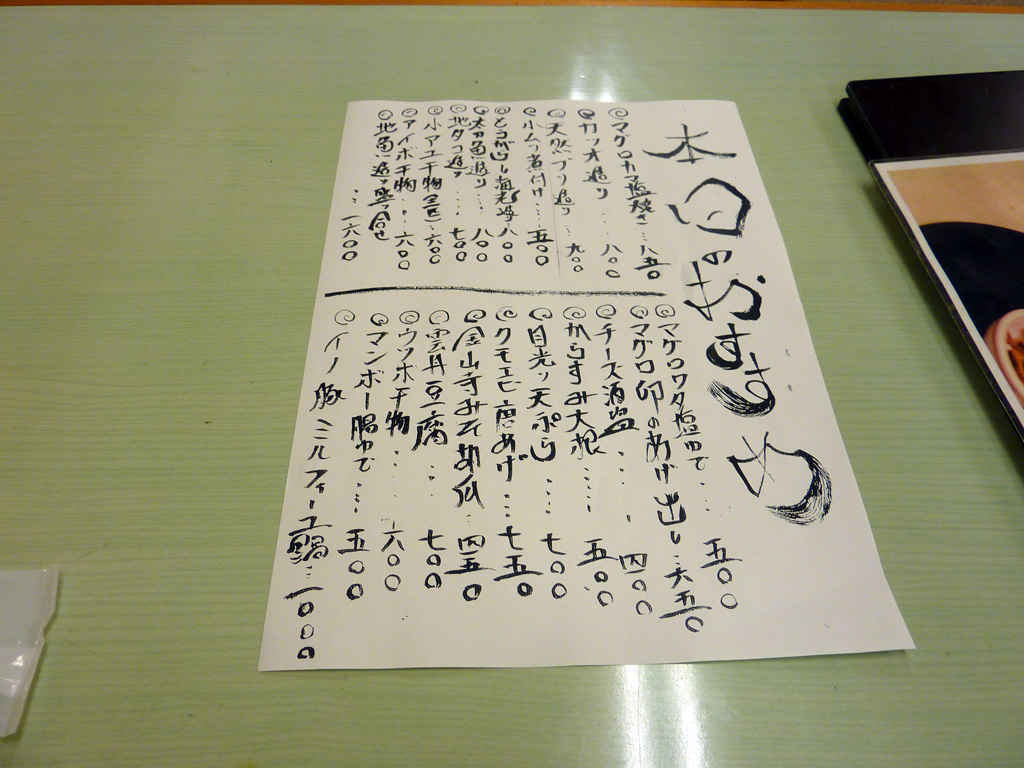 本日のおすすめ
◎マグロカマ塩焼き…八五〇
◎カツオ造り…八〇〇
◎天然ブリ造り…九〇〇
◎小ムツ煮付け…五〇〇
◎とうがらし海老…八〇〇
◎太刀魚造り…八〇〇
◎地タコ造り…七〇〇
◎小アユ干物(三匹)…六〇〇
◎アイボ干物…六〇〇
◎地魚造り盛り合せ…一六〇〇
◎マグロワタ塩ゆで…五〇〇
◎マグロ卵のあげ出し…六五〇
◎チーズ酒盗…四〇〇
◎からすみ大根…五〇〇
◎目光り天ぷら…七〇〇
◎クモエビ唐あげ…七五〇
◎金山寺みそ胡瓜…四五〇
◎雲丹豆腐…七〇〇
◎ウツボ干物…六〇〇
◎マンボー腸ゆで…五〇〇
◎イノ豚ミルフィーユ鍋…一〇〇〇